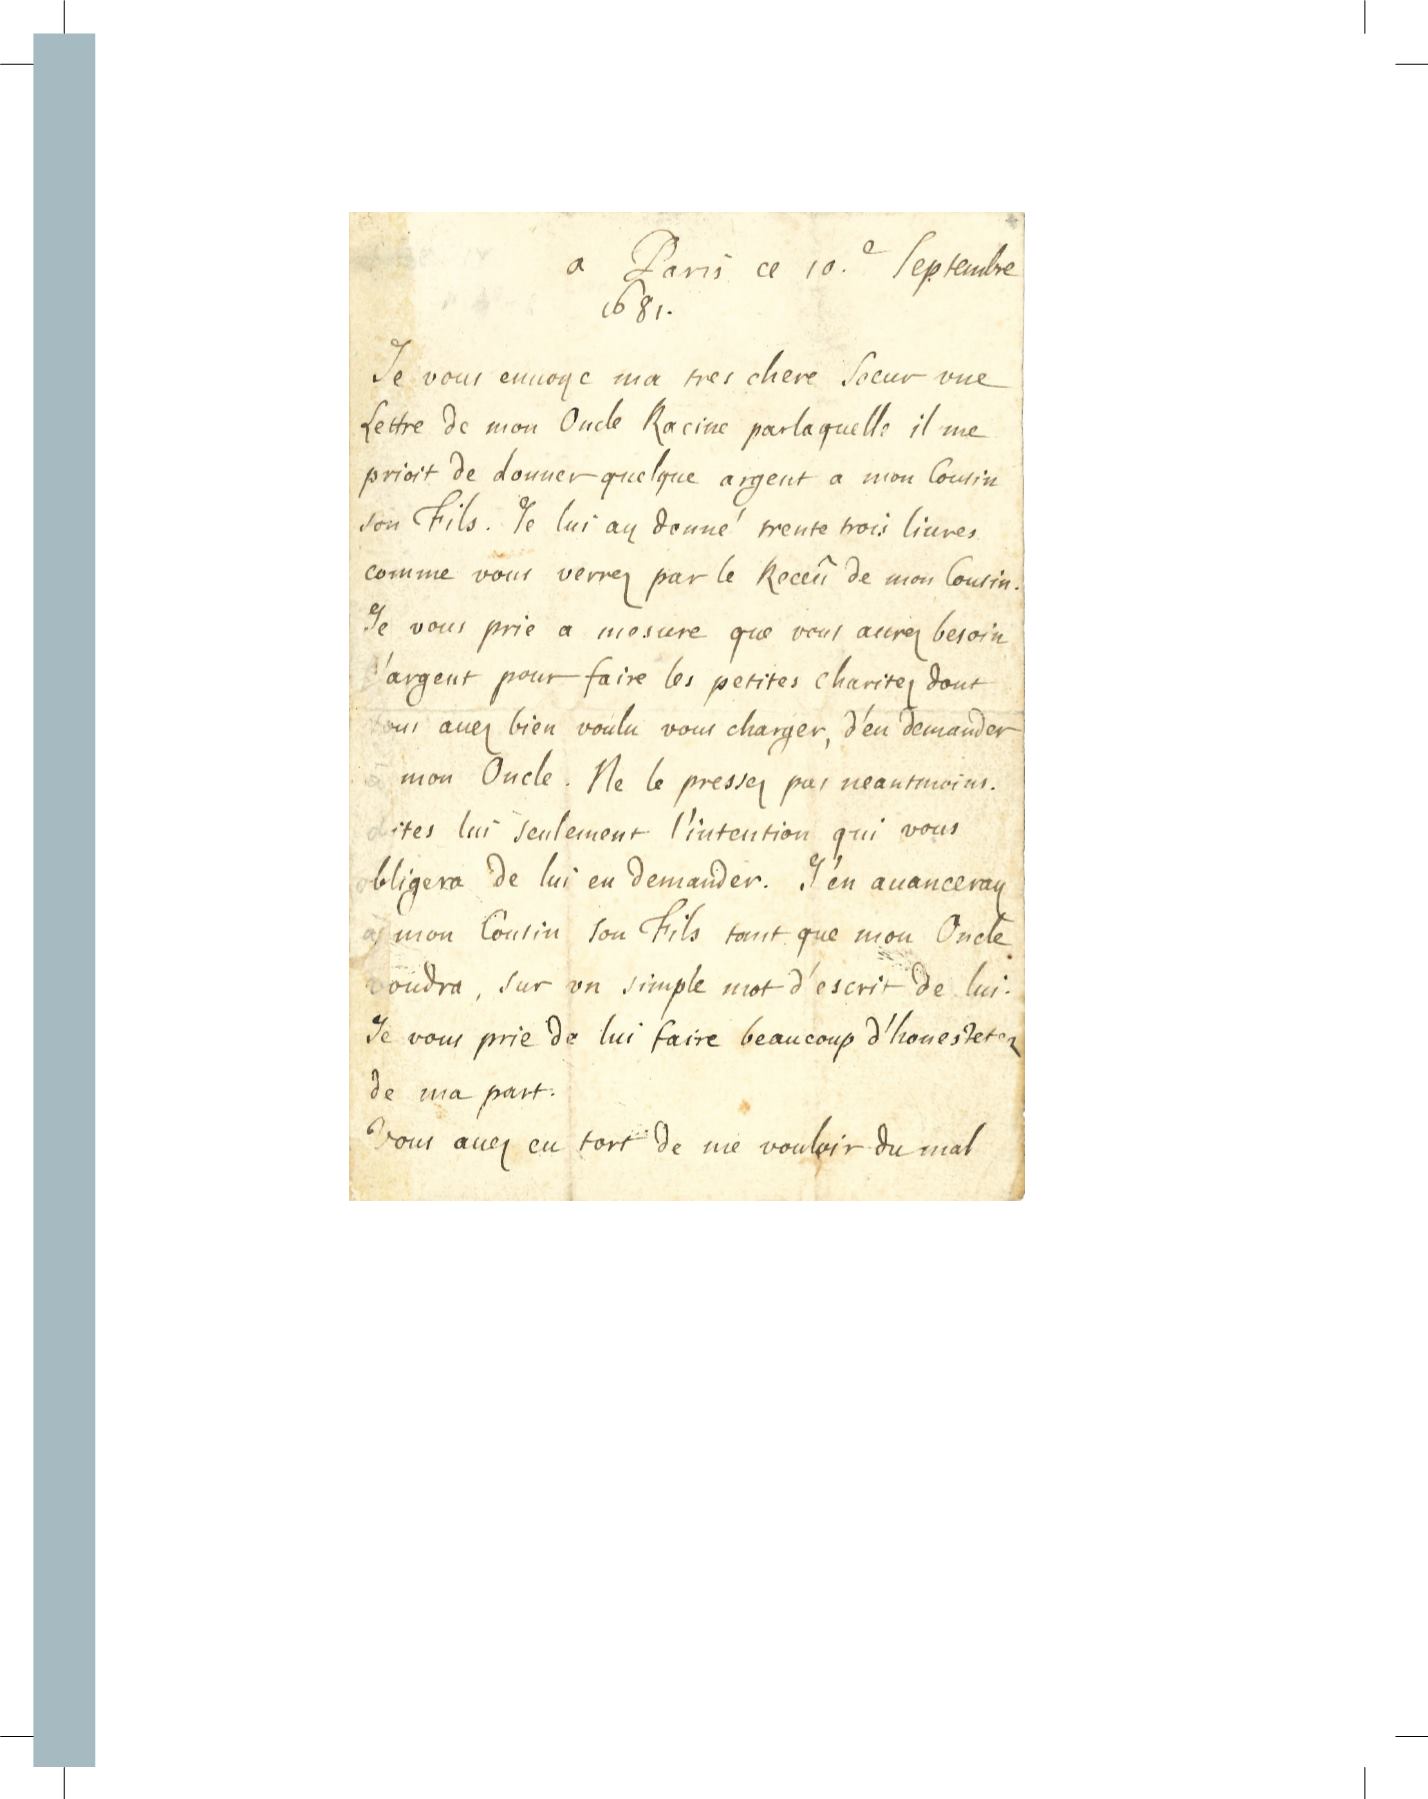 a Paris ce 10.e Septembre
1681.
Je vous enuoye ma tres chere Soeur vne
Lettre de mon Oncle Racine parlaquelle il me
prioit de donner quelque argent a mon Cousin
son Fils. Je lui ay donné trente trois liures
comme vous verrez par le Receû de mon Cousin.
Je vous prie a mesure que vous aurez besoin
d'argent pour faire les petites charitez dont
vous auez bien voulu vous charger, d'en demander
a mon Oncle. Ne le pressez pas neantmoins.
dites lui seulement l'intention qui vous
obligera de lui en demander. J'en auanceray
a mon Cousin son Fils tant que mon Oncle
voudra, sur vn simple mot d'escrit de lui.
Je vous prie de lui faire beaucoup d'honestetez
de ma part.
Vous auez eu tort de me vouloir du mal